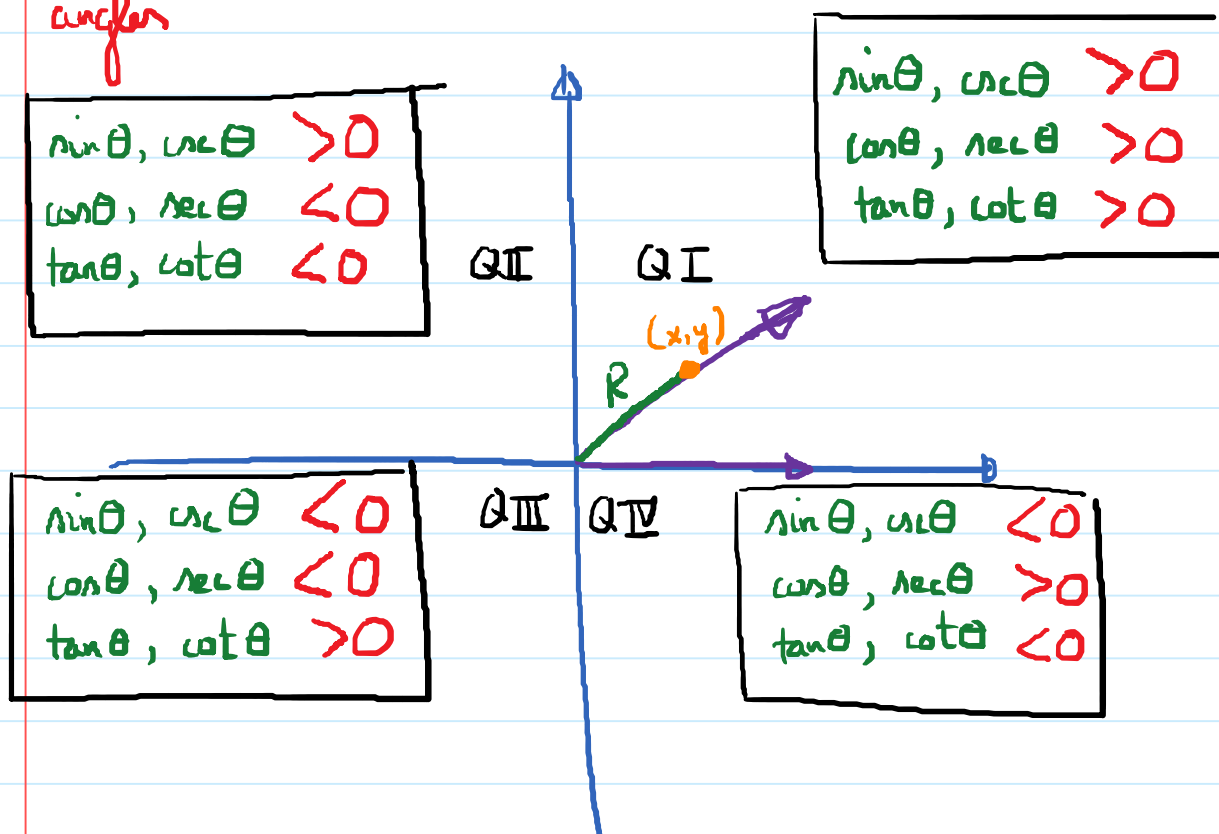 angles
sinθ, cscθ >0
cosθ, secθ >0
tanθ, cotθ >0
sinθ, cscθ >0
cosθ, secθ <0
tanθ, cotθ <0
QII
QI
(x,y)
R
QIII
QIV
sinθ, cscθ <0
cosθ, secθ <0
tanθ, cotθ >0
sinθ, cscθ <0
cosθ, secθ >0
tanθ, cotθ <0